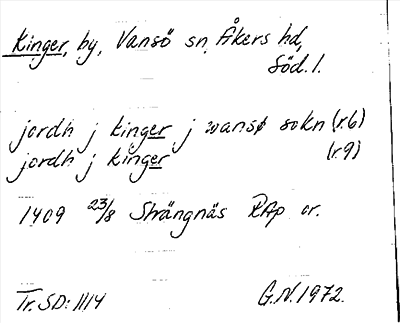 Kinger, by, Vansö sn, Åkers hd,
Söd. l.
jordh j kinger j wansø sokn (r.6)
jordh j kinger (r.9)
1409 23/8 Strängnäs RAp or.
Tr. SD: II 14
G.N. 1972.